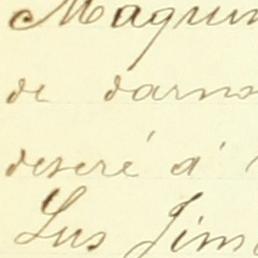 Maquin
de darnos
deseré á
Lus Jim